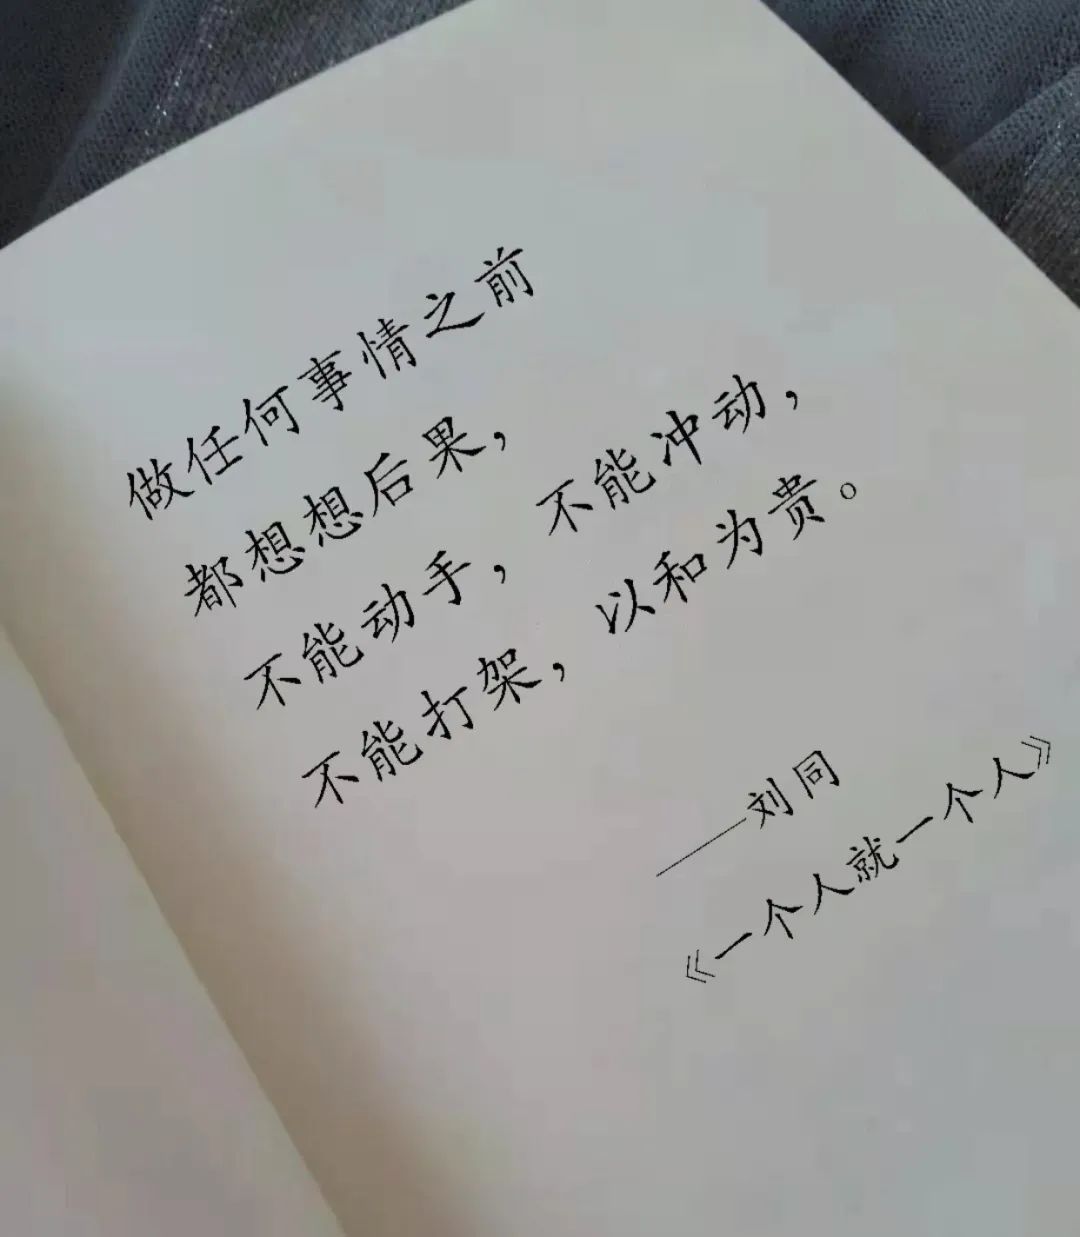 做任何事情之前
都想想后果，
不能动手，不能冲动，
不能打架，以和为贵。
——刘同
《一个人就一个人》